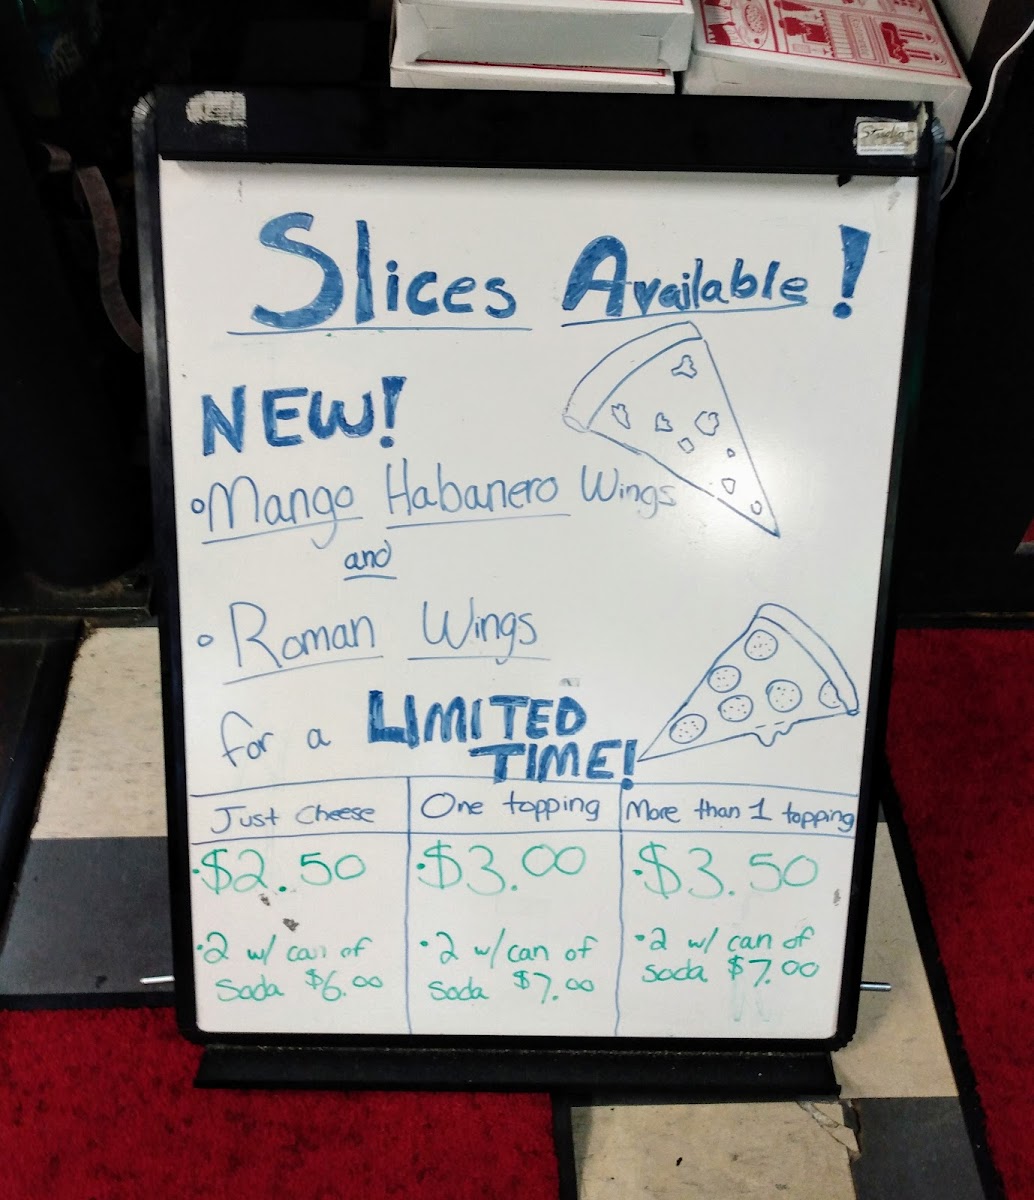 Studio
Slices Available!
NEW!
•Mango Habanero Wings
and
• Roman Wings
for a LIMITED
TIME!
Just Cheese
•$2.50
•2 w/ can of
soda $6.00
One topping
•$3.00
•2 w/ can of
soda $7.00
More than 1 topping
•$3.50
•2 w/ can of
soda $7.00